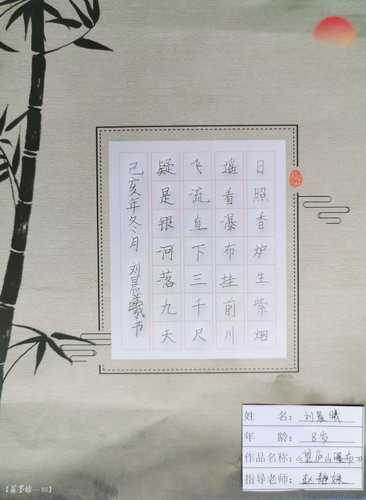 日照香炉生紫烟
遥看瀑布挂前川
飞流直下三千尺
疑是银河落九天
己亥年冬月 刘晨曦书
姓 名:刘晨曦
年 龄:8岁
作品名称:《望庐山瀑布》
指导老师:赵静姝